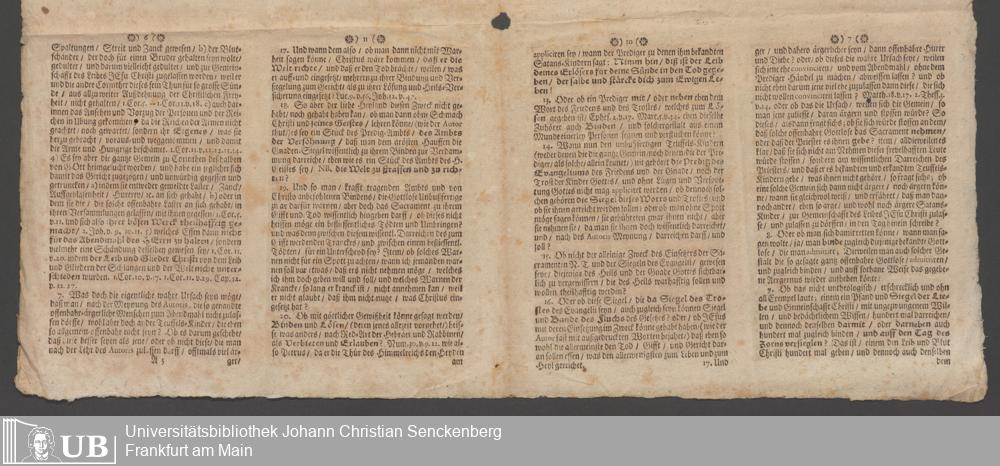 )6(
Spaltungen / Streit und Zanck gewesen / b) der Blut-
schander / der doch für einen Bruder gehalten seyn wolte/
geduldet / und darzu vielleicht geduldet / und zu Gemein-
schafft des Leibes JEsu Christi zugelassen worden / weil er
und die andre Corinther dieses sein Thun für so grosse Sün-
de / aus allgemeiner Aufdehnung der Christlichen Frey-
heit / nicht gehalten / 1. Cor. 5.
men das Ansehen und Vorzug der Personen und der Rei-
chen in Übung gekommen / da die Reiche der Armen nicht
geachtet / noch gewartet / sondern ihr Eigenes / was sie
herzu gebracht / voraus und weggenommen / und damit
die Arme und Hungrige beschämet. 1. Cor. 11. v. 21.
4) Es sey aber die gantze Gemein zu Corinthen deßhalben
von GOtt heimgesucht worden / und habe ein jeglicher sich
damit das Gericht zugezogen / und unwürdig gegessen und
getruncken / a) indem sie entweder gemeldte Laster / Zanck /
in ihren Versammlungen gelassen / mit ihnen gegessen / 1. Cor. 5.
v. 11. und sich also ihrer bösen Werck theilhafftig ge-
macht / 2. Joh. v. 9. 10. 11. 5) welches Essen dann nicht
für das Abendmahl des HErrn zu halten / sondern
vielmehr eine Schändung desselben gewesen sey / 1. Cor. 11.
v. 20. indem der Leib und Glieder Christi von dem Leib
und Gliedern der Schlangen und der Welt nicht unter-
schieden wurden.
7. Was doch die eigentliche wahre Ursach seyn möge /
daß man / nach der Meynung des Autoris, diese genandte
offenbahr-ärgerliche Menschen zum Abendmahl nicht zulas-
sen dörffe / wohl aber doch andre Teuffels-Kinder / die eben
so allgemein-offenbahr nicht seyn? Ob es darum geschehe /
daß jene besser seyen als jene / oder ob nicht diese / die man
nach der Lehr des Autoris zulassen darff / offtmals viel är-
A 3
ger/
)11(
17. Und wann dem also / ob man dann nicht mit War-
heit sagen könne / Christus wäre kommen / daß er die
Welt richte / und daß er den Tod brächte / weilen / was
er auff- und eingesetzt / mehrern zu ihrer Bindung und Ver-
siegelung zum Gericht / als zu ihrer Lösung und Heils-Ver-
sicherung gereicht?
18. So aber der liebe Heyland diesen Zweck nicht ge-
habt / noch gehabt haben kan / ob man dann ohne Schmach
Christi und seines Geistes / lehren könne / (wie der Autor
thut /) es sey ein Stuck des Predig-Ambts / des Ambts
der Versöhnung / daß man dem grösten Hauffen die
Gnaden-Siegel wissentlich zu ihrem Binden zur Verdam-
mung darreiche / eben wie es ein Stück des Ambts des H.
Geistes sey / NB. die Welt zu straffen und zu rich-
ten?
19. Und so man / krafft tragenden Ambts und von
Christo anbefohlenen Bindens / die Gottlose Unbußfertige
zu darffe warnen / aber doch das Sacrament zu ihrem
Gifft und Tod wissentlich hingeben darff / ob dieses nicht
heissen möge ein heil-sichtliches Tödten und Umbringen?
und was dann zwischen diesem wissentl. Darreichen des zum
Gifft werdenden Trancks / und zwischen einem heil-sichtl.
Tödten / für ein Unterscheid sey? Item / ob solches War-
nen nicht für ein Spott zu achten / wann ich jemand zu war-
nen soll vor etwas / daß ers nicht nehmen möge / welches
ich ihm doch geben will und soll / und welches Warnen der
Krancke / so lang er kranck ist / nicht annehmen kan / weil
er nicht glaubt / daß ihm nicht nutze / was Christus ein-
gesetzt hat?
20. Ob mit göttlicher Gewißheit könne gesagt werden /
Binden und Lösen / (deren jenes allzeit vorhergeht) heis-
se was anders / nach Red-Art der Hebräer und Rabbinen /
als Verbieten und Erlauben?
so Petrus / da er die Thür des Himmelreichs den Heyden
am
)10(
appliciren sey / wann der Prediger zu denen ihm bekandten
Satans-Kindern sagt: Nimm hin / diß ist der Leib
deines Erlösers für deine Sünde in den Tod gege-
ben / der labe und stärcke dich zum Ewigen Le-
ben!
13. Oder ob ein Prediger mit / oder neben eben dem
Wort des Friedens und des Trostes / welches zum Lö-
sen gegeben ist /
Zuhörer auch Binden / und solchergestalt aus einem
Mund einerley Personen segnen und verfluchen könne?
14. Wann nun den unbußfertigen Teuffels-Kindern
(weder denen die die gantze Gemein / noch denen die der Pre-
diger / als solche / allein kennet) nicht gehöret die Predigt des
Evangeliums des Friedens und der Gnade / noch der
Trost der Kinder Gottes / und ohne Lügen und Verspot-
tung Gottes nicht mag applicirt werden / ob dennoch sol-
chen gehören die Siegel dieses Worts und Trostes / und
ob sie ihnen gereicht werden sollen / oder ob man ohne Spott
möge sagen können / sie gebühreten zwar ihnen nicht / aber
sie nehmen sie / da man sie ihnen doch wissentlich darreichet /
und / nach des Autoris Meynung / darreichen darff / und
soll?
15. Ob nicht der alleinige Zweck des Einsetzers der Sa-
cramenten N. T. und der Siegeln des Evangelii / gewesen
seye / diejenige des Heils und der Gnade Gottes sichtbar-
lich zu vergewissern / die des Heils warhafftig sollen und
wollen theilhafftig werden?
16. Ob oder diese Siegel / die da Siegel des Tro-
stes des Evangelii seyn / auch zugleich seyn können Siegel
und Bande des Fluchs des Gesetzes? oder / ob JEsus
mit deren Einsetzung im Zweck könne gehabt haben / (wie der
Autor fast mit ausgedruckten Worten bejahet /) daß eben so
wohl die allermeiste den Tod / Gifft / und Gericht dar-
an sollen essen / was den allerwenigsten zum Leben und zum
Heyl gereichet.
17. Und
)7(
ger / und dahero ärgerlicher seyn / dann offenbahre Hurer
und Diebe? oder / ob dieses die wahre Ursach seye / weilen
sich jene von dem Abendmahl / ohne dem
Prediger Händel zu machen / abweisen lassen? und ob
man nicht darum jene viel ehe zuzulassen dann diese / die sich
nicht wollen convinciren lassen? Matth.
seq. oder ob das die Ursach / wenn sich die Gemein / so
man jene zuließ / daran ärgern und stossen würde? So
dieses / alsdann fragt sich / ob sie sich würde stossen an dem /
daß solche offenbahre Gottlose das Sacrament nehmen /
oder daß der Priester es ihnen gebe? Item / alldieweilen es
klar / daß sie sich nicht am Nehmen dieser zweiffelhafften Leute
würde stossen / sondern am wissentlichen Darreichen des
Priesters / und daß er es bekandten und erkandten Teuffels-
Kindern gebe / was ihnen nicht gehöre / so fragt sichs / ob
eine solche Gemein sich dann nicht ärgere / noch ärgern kön-
ne / wann sie gleichwol weiß / und erfahret / daß man den-
noch andre / eben so arge / und wohl noch ärgere Satans-
Kinder / zur Gemeinschafft des Leibes JEsu Christi zulas-
se / und zulassen zu dörffen / in den Tag nein schreibe?
8. Oder ob man sich damit retten könne / wann man sa-
gen wolte / ja / man binde zugleich diejenige bekandte Gott-
lose / die man admittiret, wann man auch solcher Ge-
stalt die so gesagte gantz offenbahre Gottlose / admittiren,
und zugleich binden / und auff sothane Weise das gegebe-
ne Aergernüß wieder auffheben könte?
9. Ob das nicht unthologisch / erschrecklich und ohn
all Exempel laute / einem ein Pfand und Siegel der Lie-
be und Gemeinschafft Christi / mit ungezwungenem Wil-
len / und bedächtlichem Wissen / hundertmal darreichen /
und dennoch denselben darmit / oder darneben auch
hundert mal zugleich binden / und auff den Tag des
Zorns versiegeln? Das ist / einem den Leib und Blut
Christi hundert mal geben / und dennoch auch denselben
dem
UB
Universitätsbibliothek Johann Christian Senckenberg
Frankfurt am Main